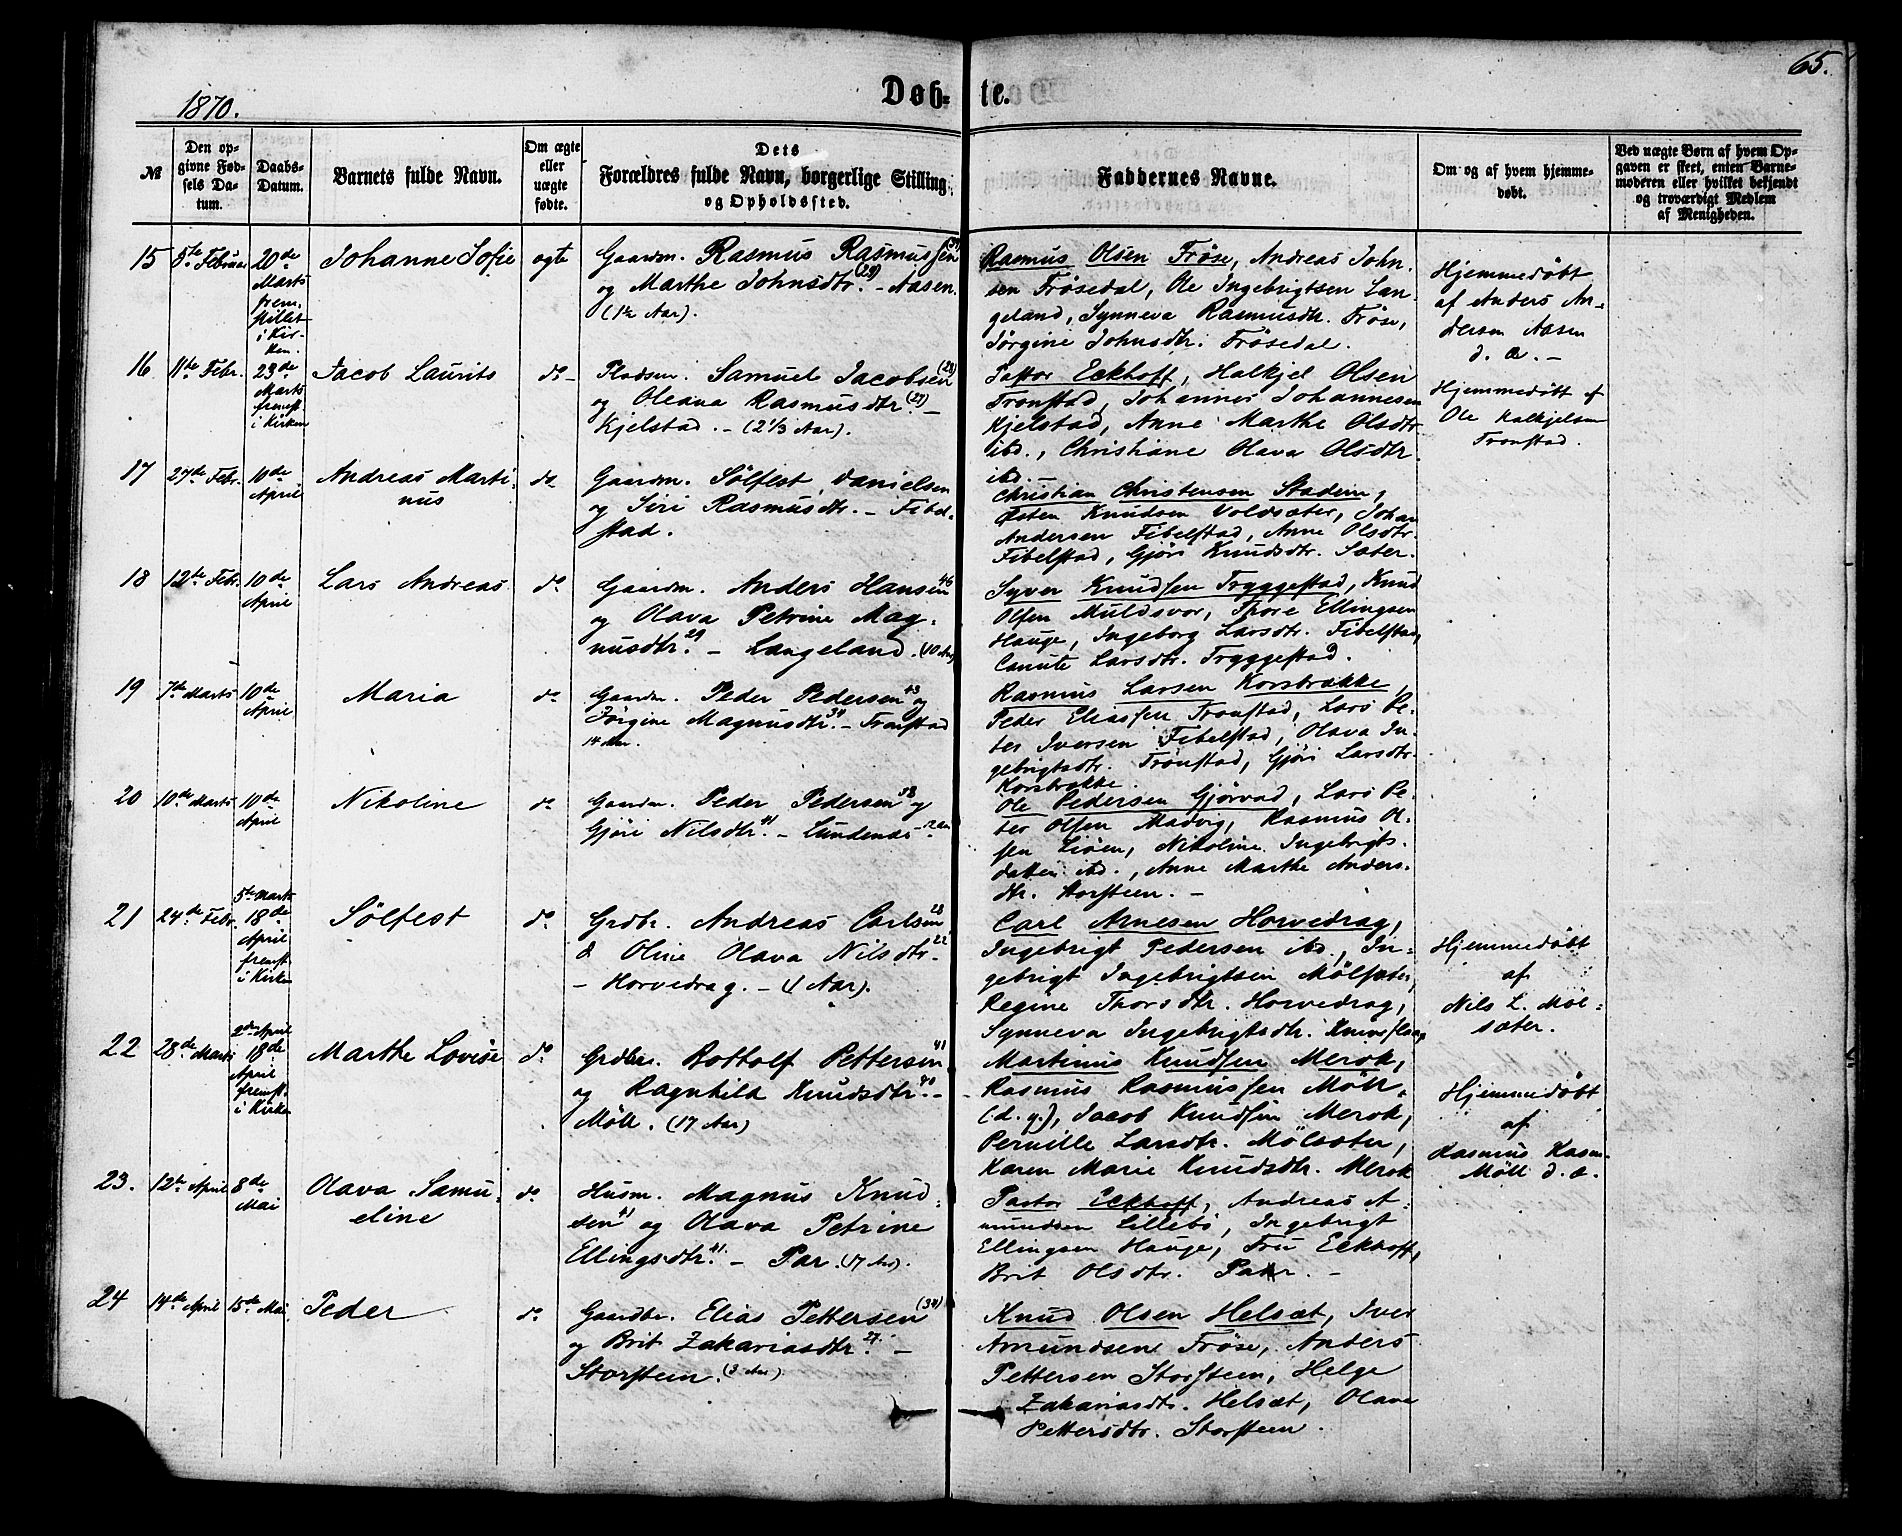 65.
1870.
Døb- te.
№
Den op-
givne Fød-
sels Da-
tum.
Daabs-
Datum.
Barnets fulde Navn.
Om ægte
eller
uægte
fødte.
Dets
Forældres fulde Navn, borgerlige Stilling,
og Opholdssted.
Faddernes Navne.
Om og af hvem hjemme-
døbt.
Ved uægte Børn af hvem Op-
gaven er skeet, enten Barne-
moderen eller hvilket bekjendt
og troværdigt Medlem
af Menigheden.
15
5te Februar
20de
Marts
frem-
stillet
i Kir-
ken.
Johanne Sofie
ægte
Gaardm. Rasmus Rasmussen
og Marthe Johnsdtr. (29) - Aasen.
(1½ Aar).
Rasmus Olsen Frøse, Andreas John-
sen Frøsedal, Ole Ingebrigtsen Lan-
geland, Synneva Rasmusdtr. Frøse,
Jørgine Johnsdtr. Frøsedal.
Hjemmedøbt
af Anders An-
dersen Aasen
d. æ. -
16
11te Febr.
23de
Marts
fremst.
i Kirken
Jacob Laurits
do -
Pladsm. Samuel Jacobsen
og Oleana Rasmusdtr. (27) -
Kjelstad. - (2 1/3 Aar).
Pastor Eckhoff, Halkjel Olsen
Tronstad, Johannes Johannesen
Kjelstad, Anne Marthe Olsdtr.
ibd., Christiane Olava Olsdtr.
ibd.
Hjemmedøbt af
Ole Halkjelsen
Tronstad.
17
27de Febr.
10de
April
Andreas Marti-
nus
do
Gaardm. Sølfest Danielsen
og Siri Rasmusdtr. - Fibel-
stad.
Christian Christensen Stadem,
Østen Knudsen Voldsæter, Johan
Andersen Fibelstad, Anne Olsdtr.
Fibelstad, Gjøri Knudsdtr. Sæter.
18
12te Febr.
10de
April
Lars Andreas
do
Gaardm. Anders Hansen 46
og Olava Petrine Mag-
nusdtr. 29 - Langeland. (10 Aar)
Syver Knudsen Tryggestad, Knud
Olsen Muldsvor, Thore Ellingsen
Hauge, Ingeborg Larsdtr. Fibelstad,
Canute Larsdtr. Tryggestad.
19
7de Marts
10de
April
Maria
do
Gaardm. Peder Pedersen 43 og
Jørgine Magnusdtr. 34 - Tronstad
14 Aar.
Rasmus Larsen Korsbrække,
Peder Eliassen Tronstad, Lars Pe-
ter Iversen Fibelstad, Olava In-
gebrigtsdtr. Tronstad, Gjøri Larsdtr.
Korsbrække.
20
10de Marts
10de
April
Nikoline
do
Gaardm. Peder Pedersen 38 og
Gjøri Nilsdtr. 41 - Lundenæs -
Ole Pedersen Gjørvad, Lars Pe-
ter Olsen Madvig, Rasmus Ol-
sen Liøen, Nikoline Ingebrigts-
datter ibd., Anne Marthe Anders-
dtr. Storsteen. -
21
24de Febr.
5te Marts
18de
April
fremst.
i Kirken
Sølfest
do
Grdbr. Andreas Carlsen 28
& Oline Olava Nilsdtr. 22
- Horvedrag. - (1 Aar).
Carl Arnesen Horvedrag,
Ingebrigt Pedersen ibd., In-
gebrigt Ingebrigtsen Mölsæter,
Regine Thorsdtr. Horvedrag,
Synneva Ingebrigtsdtr.
Hjemmedøbt
af
Nils L. Möl-
sæter.
22
28de Marts
2den April
18de
April
fremst.
i Kirken
Marthe Lovise
do
Grdbr. Rottolf Pettersen 41
og Ragnhild Knudsdtr. 40 -
Möll. (17 Aar)
Martinus Knudsen Merok,
Rasmus Rasmussen Möll
(d. y.), Jacob Knudsen Merok,
Pernille Larsdtr. Mölsæter,
Karen Marie Knudsdtr. Merok
Hjemmedøbt
af
Rasmus Rasm.
Möll d. æ.
23.
12te April
8de
Mai
Olava Samu-
eline
do
Husm. Magnus Knud-
sen 41 og Olava Petrine
Ellingsdtr. 41. - Par. (17 Aar).
Pastor Eckhoff, Andreas A-
mundsen Lillebø, Ingebrigt
Ellingsen Hauge, Fru Eckhoff,
Brit Olsdtr. Par. -
24
14de April
15de Mai
Peder
do
Gaardbr. Elias Pettersen (34)
og Brit Zakariasdtr. 27. -
Storsteen. (3 Aar).
Knud Olsen Helsæt, Iver
Amundsen Frøse, Anders
Pettersen Storsteen, Helge
Zakariasdtr. Helsæt, Olava
Pettersdtr. Storsteen.